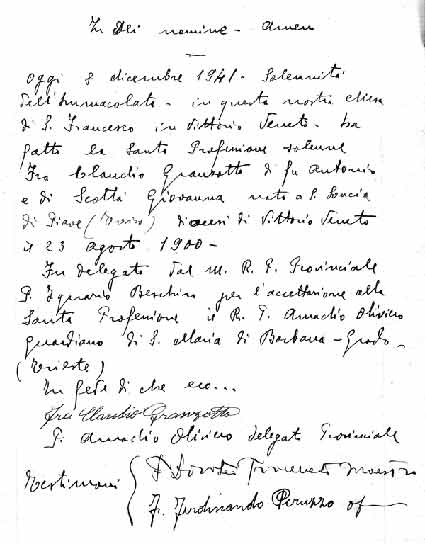 In Dei nomine - Amen
Oggi 8 dicembre 1941 - Solennità
dell'Immacolata - in questa nostra chiesa
di S. Francesco in Vittorio Veneto - ha
fatto la Santa Professione solenne
Fra Claudio Granzotto di fu Antonio
e di Scottà Giovanna nato a S. Lucia
di Piave (Treviso) diocesi di Vittorio Veneto
il 23 agosto 1900 -
Fu delegato dal M. R. P. Provinciale
P. Ignazio Beschin per l'accettazione alla
Santa Professione il R. P. Amadio Olivieo
guardiano di S. Maria di Barbana - Grado -
(Trieste)
In fede di che ecc...
Fra Claudio Granzotto
P. Amadio Olivieo delegato Provinciale
Testimoni P. Maestro
F. Ferdinando Peruzzo of